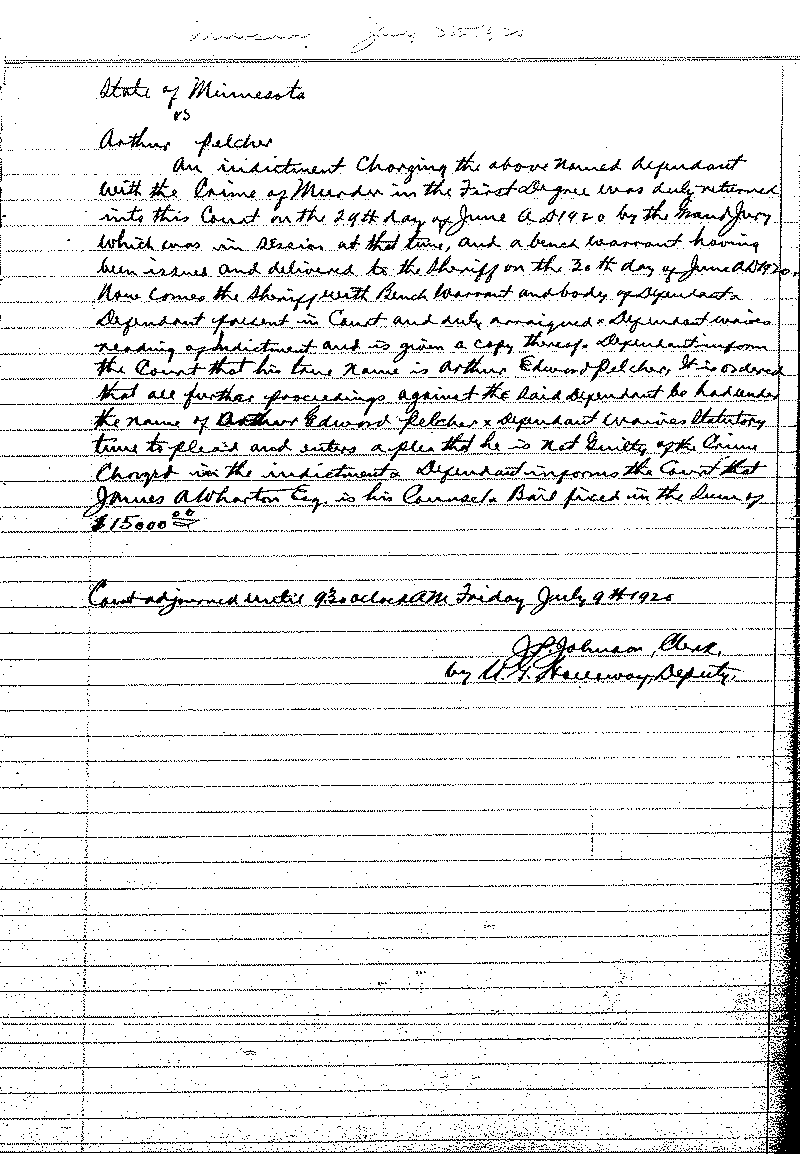 July
State of Minnesota
vs
Arthur Pelcher
An indictment Charging the above named defendant
with the Crime of Murder in the First Degree was duly returned
into this Court on the 29th day of June A.D 1920 by the Grand Jury
which was in session at that time, and a bench warrant having
been issued and delivered to the Sheriff on the 30th day of June A.D 1920.
Now comes the Sheriff with Bench Warrant and body of Defendant x
Defendant present in Court and duly arraigned x Defendant waives
reading of indictment and is given a copy thereof x Defendant inform
the Court that his true name is Arthur Edward Pelcher, It is ordered
that all further proceedings against the Said Defendant be had under
the name of Arthur Edward Pelcher x Defendant waives Statutory
time to plead and enters a plea that he is not Guilty of the Crime
Charged in the indictment x Defendant informs the Court that
James A Wharton Esq. is his Counsel x Bail fixed in the Sum of
$15000 00
Court adjourned until 930 oclock AM Friday July 9th 1920
Johnson, Clerk.
by Deputy.